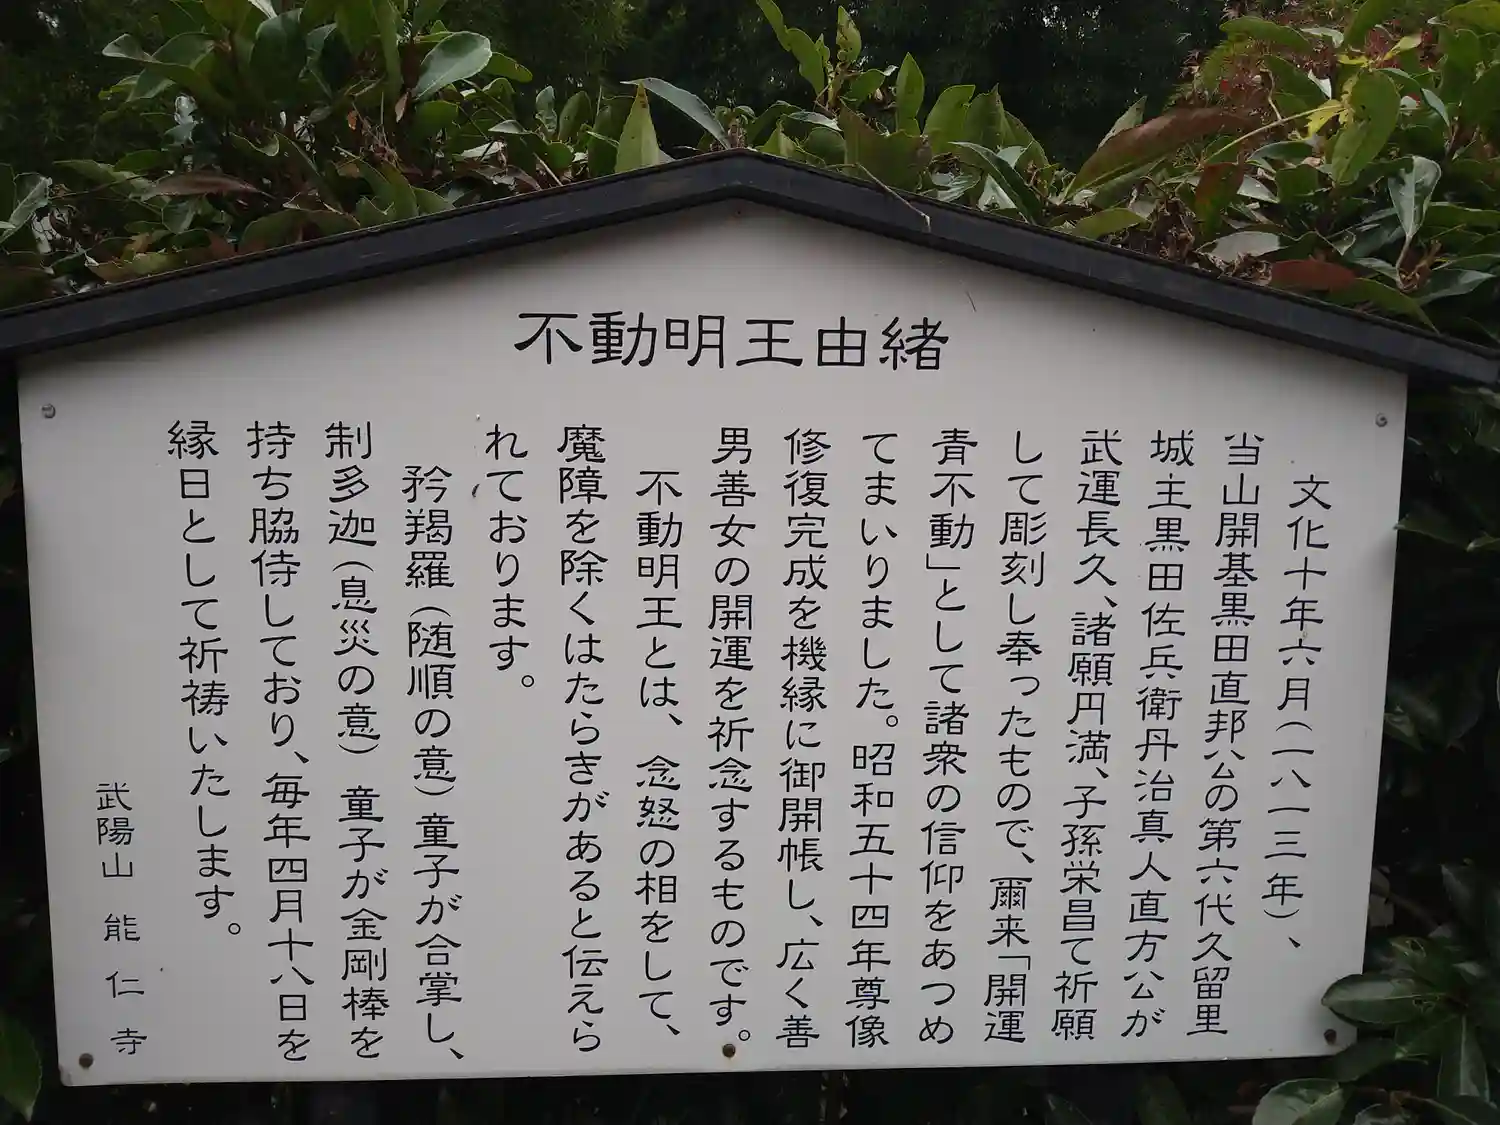 不動明王由緒
文化十年六月(一八一三年)、
当山開基黒田直邦公の第六代久留里
城主黒田佐兵衛丹治真人直方公が
武運長久、諸願円満、子孫栄昌て祈願
して彫刻し奉ったもので、爾来「開運
青不動」として諸衆の信仰をあつめ
てまいりました。昭和五十四年尊像
修復完成を機縁に御開帳し、広く善
男善女の開運を祈念するものです。
不動明王とは、念怒の相をして、
魔障を除くはたらきがあると伝えら
れております。
矜羯羅(随順の意)童子が合掌し、
制多迦(息災の意)童子が金剛棒を
持ち脇侍しており、毎年四月十八日を
縁日として祈祷いたします。
武陽山 能仁寺